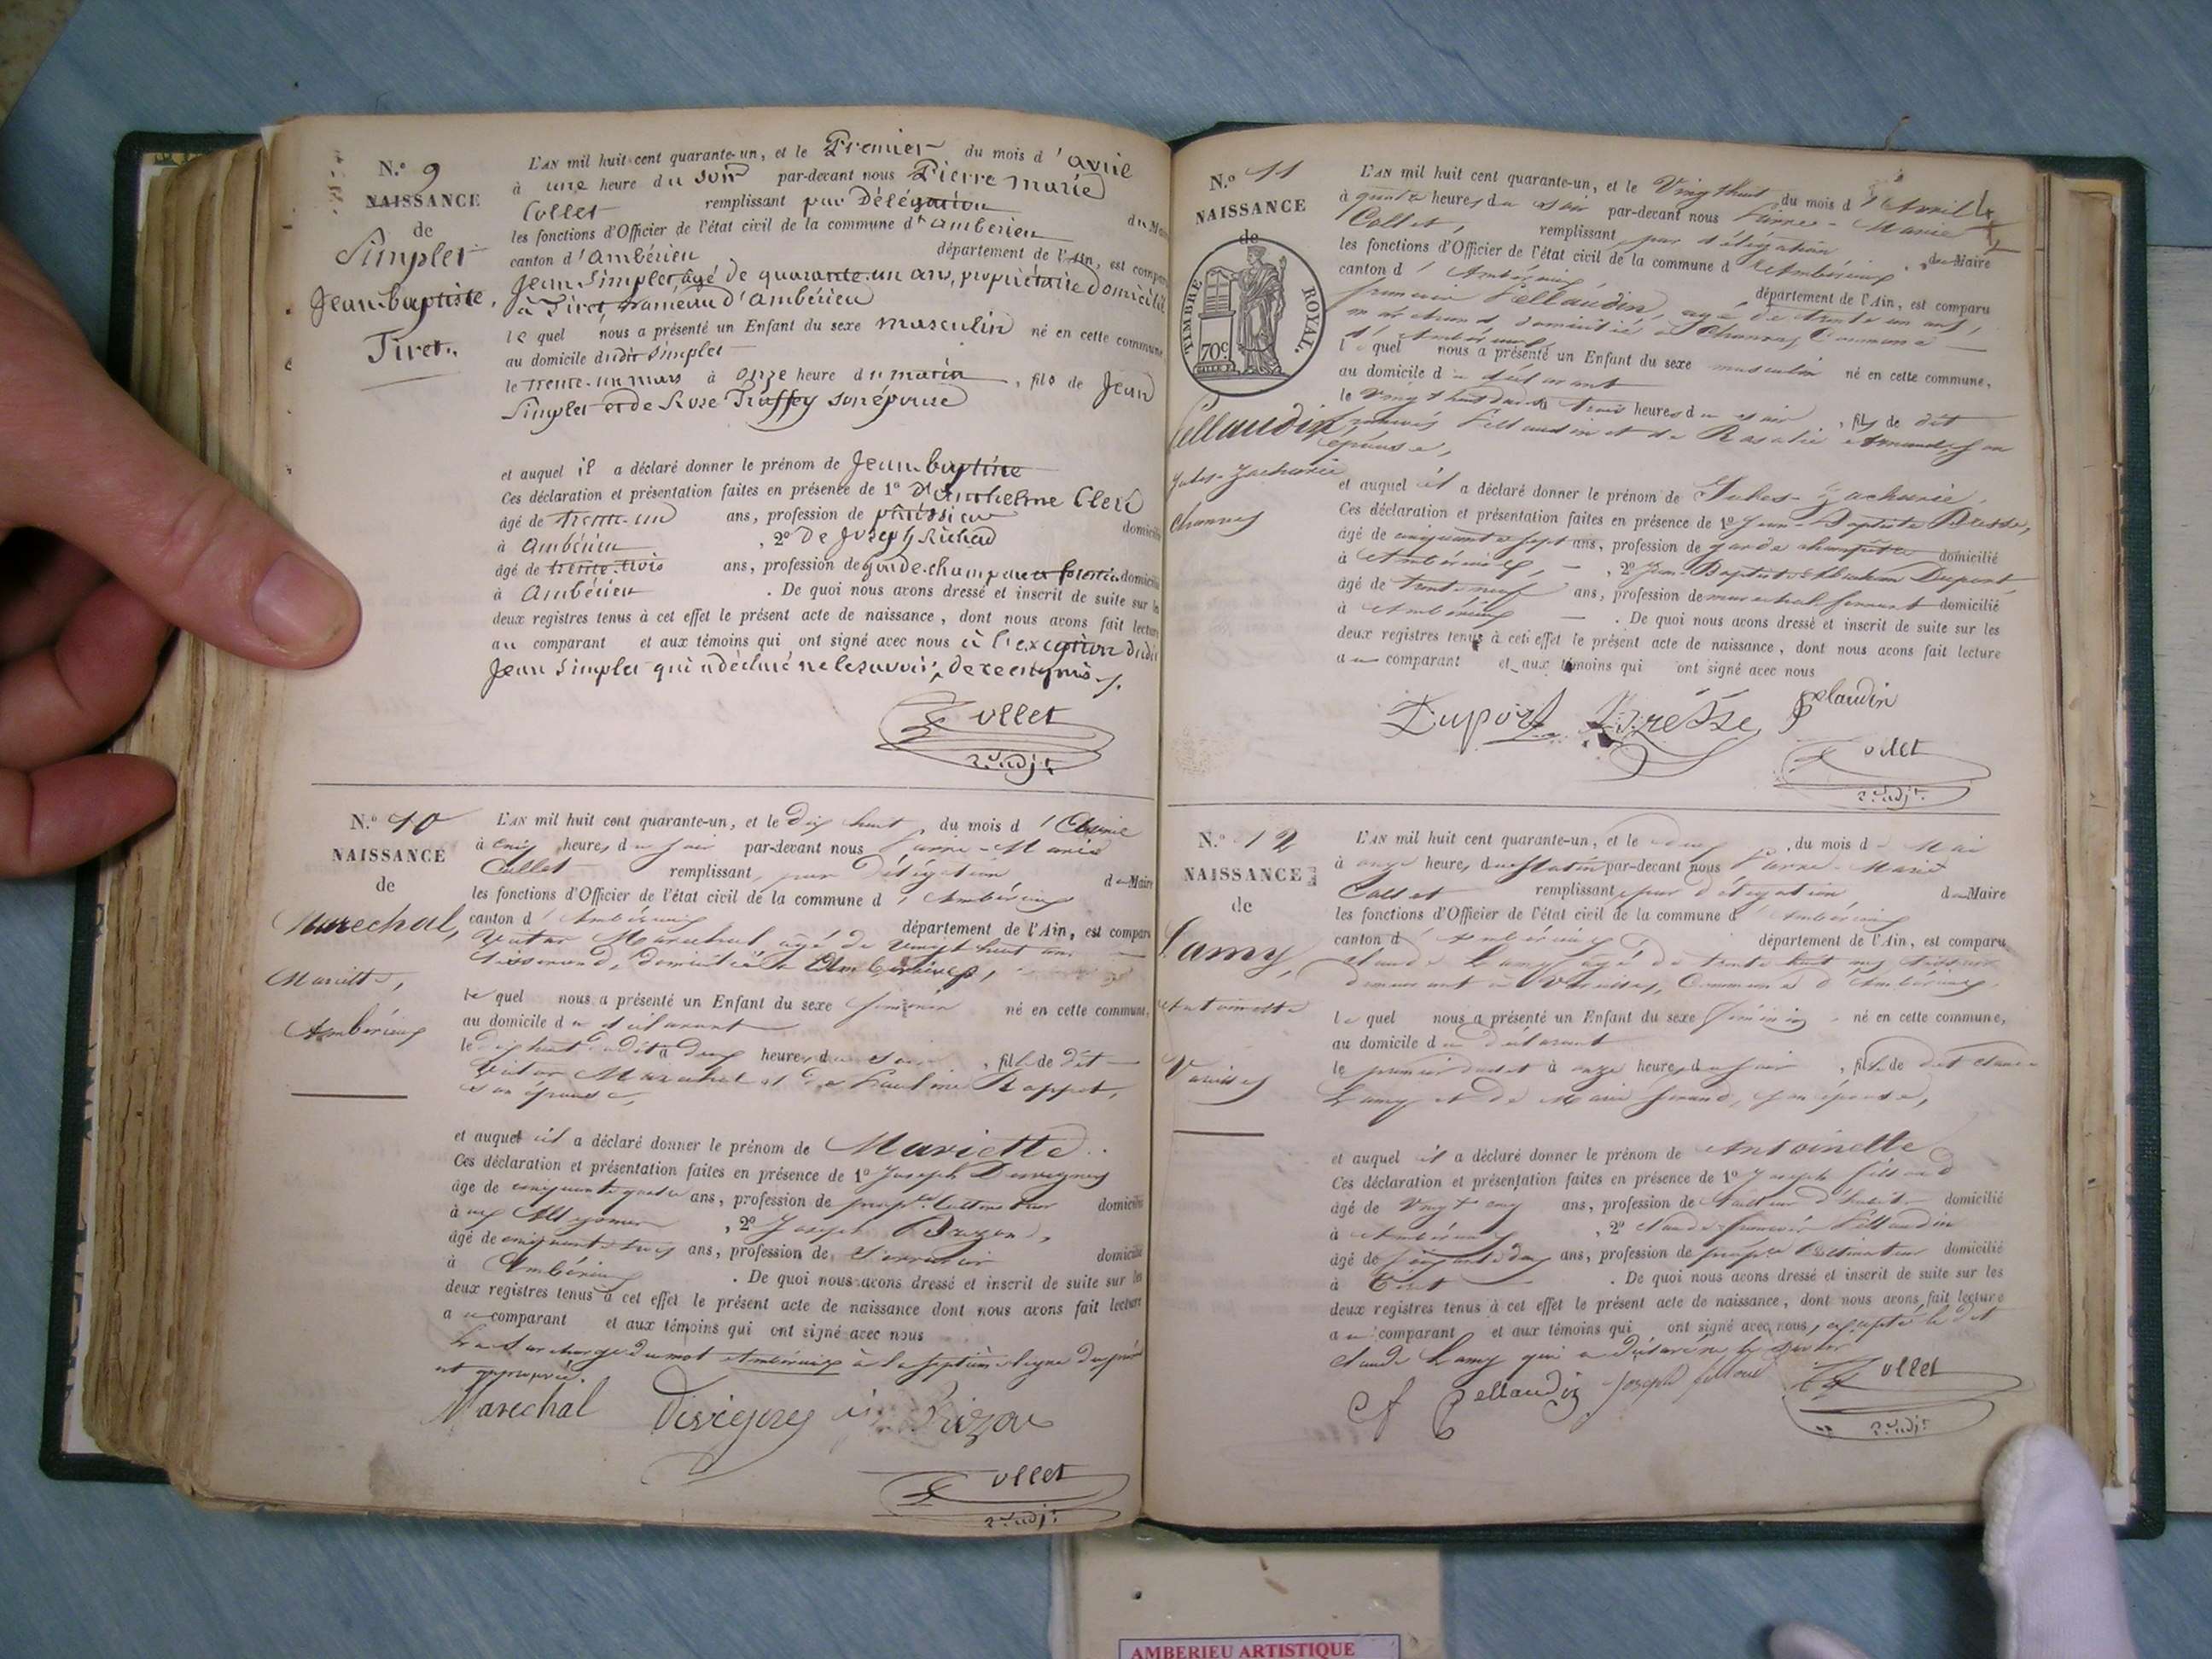 N.o 9
NAISSANCE
de
Simplet
Jean baptiste,
Tiret.
L'AN mil huit cent quarante-un, et le Premier du mois d'avril
à une heure du soir par-devant nous Pierre marie
Collet remplissant par Délégation du Maire
les fonctions d'Officier de l'état civil de la commune d'amberieu
canton d'ambérieu département de l'Ain, est comparu
Jean Simplet âgé de quarante-un ans, propriétaire domicilié
à Tiret, hameau d'ambérieu
le quel nous a présenté un Enfant du sexe masculin né en cette commune,
au domicile dudit Simplet
le trente-un mars à onze heure du matin, fils de Jean
Simplet et de Rose Truffey son épouse
et auquel il a déclaré donner le prénom de Jean baptiste
Ces déclaration et présentation faites en présence de 1o D'anthelme Clerc
âgé de trente-un ans, profession de domicilié
à ambérieu, 2o De Joseph Richard
âgé de trente-trois ans, profession de garde-champetre et forestier domicilié
à ambérieu. De quoi nous avons dressé et inscrit de suite sur les
deux registres tenus à cet effet le présent acte de naissance, dont nous avons fait lecture
au comparant et aux témoins qui ont signé avec nous à l'exception dudit
Jean Simplet qui a déclaré ne le savoir, de ce enquis
Collet
2e adjt
N.o 10
NAISSANCE
de
Marechal,
Mariette,
Ambérieux
L'AN mil huit cent quarante-un, et le dix huit du mois d'Avril
à cinq heures du soir par-devant nous Pierre-Marie
Collet remplissant par délégation du Maire
les fonctions d'Officier de l'état civil de la commune d'Ambérieux
canton d'Ambérieux département de l'Ain, est comparu
Victor Marechal, âgé de vingt huit ans
Tisserand, domicilié à Ambérieux,
le quel nous a présenté un Enfant du sexe féminin né en cette commune,
au domicile du déclarant
le dix huit dudit à deux heures du soir, fille de dit
Victor Marechal et de Pauline Rappet,
son épouse,
et auquel il a déclaré donner le prénom de Mariette
Ces déclaration et présentation faites en présence de 1o Joseph Desvignes
âgé de cinquante quatre ans, profession de propre Cultivateur domicilié
à, 2o Joseph
âgé de cinquante trois ans, profession de Serrurier domicilié
à Ambérieux. De quoi nous avons dressé et inscrit de suite sur les
deux registres tenus à cet effet le présent acte de naissance dont nous avons fait lecture
au comparant et aux témoins qui ont signé avec nous
La surcharge du mot Ambérieux à la septième ligne
est approuvée.
Marechal Desvignes
Collet
2e adjt
N.o 11
NAISSANCE
de
TIMBRE ROYAL.
70c
Pellaudin
Jules-Zacharie
Channes
L'AN mil huit cent quarante-un, et le Vingt huit du mois d'Avril
à quatre heures du soir par-devant nous Pierre-Marie
Collet, remplissant par délégation du Maire
les fonctions d'Officier de l'état civil de la commune d'Ambérieux
canton d'Ambérieux département de l'Ain, est comparu
françois Pellaudin, agé de trente un ans,
marchand, domicilié à Channes Commune
d'Ambérieux
le quel nous a présenté un Enfant du sexe masculin né en cette commune,
au domicile du déclarant
le Vingt huit dudit à trois heures du soir, fils de dit
françois Pellaudin et de Rosalie Amande, son
épouse,
et auquel il a déclaré donner le prénom de Jules-Zacharie.
Ces déclaration et présentation faites en présence de 1o Jean-Baptiste Bresse,
âgé de cinquante sept ans, profession de garde champêtre domicilié
à Ambérieux, 2o Jean-Baptiste Abraham Dupont,
âgé de trente neuf ans, profession de marechal ferrant domicilié
à Ambérieux. De quoi nous avons dressé et inscrit de suite sur les
deux registres tenus à cet effet le présent acte de naissance, dont nous avons fait lecture
au comparant et aux témoins qui ont signé avec nous
Dupont Bresse Pelaudin
Collet
2e adjt
N.o 12
NAISSANCE
de
Lamy,
Antoinette
Vareilles
L'AN mil huit cent quarante-un, et le deux, du mois de Mai
à onze heures du Matin par-devant nous Pierre-Marie
Collet remplissant par délégation du Maire
les fonctions d'Officier de l'état civil de la commune d'Ambérieux
canton d'Ambérieux département de l'Ain, est comparu
Claude Lamy agé de trente huit ans
demeurant à Vareilles, Commune d'Ambérieux,
le quel nous a présenté un Enfant du sexe féminin né en cette commune,
au domicile du déclarant
le premier dudit à onze heures du soir, fille de dit Claude
Lamy et de Marie, son épouse,
et auquel il a déclaré donner le prénom de Antoinette
Ces déclaration et présentation faites en présence de 1o Joseph
âgé de Vingt cinq ans, profession de domicilié
à Ambérieux, 2o Claude françois Pellaudin
âgé de soixante deux ans, profession de propre Cultivateur domicilié
à Tiret. De quoi nous avons dressé et inscrit de suite sur les
deux registres tenus à cet effet le présent acte de naissance, dont nous avons fait lecture
au comparant et aux témoins qui ont signé avec nous, excepté le dit
Claude Lamy qui a déclaré ne le savoir
Cf Pellaudin Joseph
Collet
2e adjt
AMBERIEU ARTISTIQUE